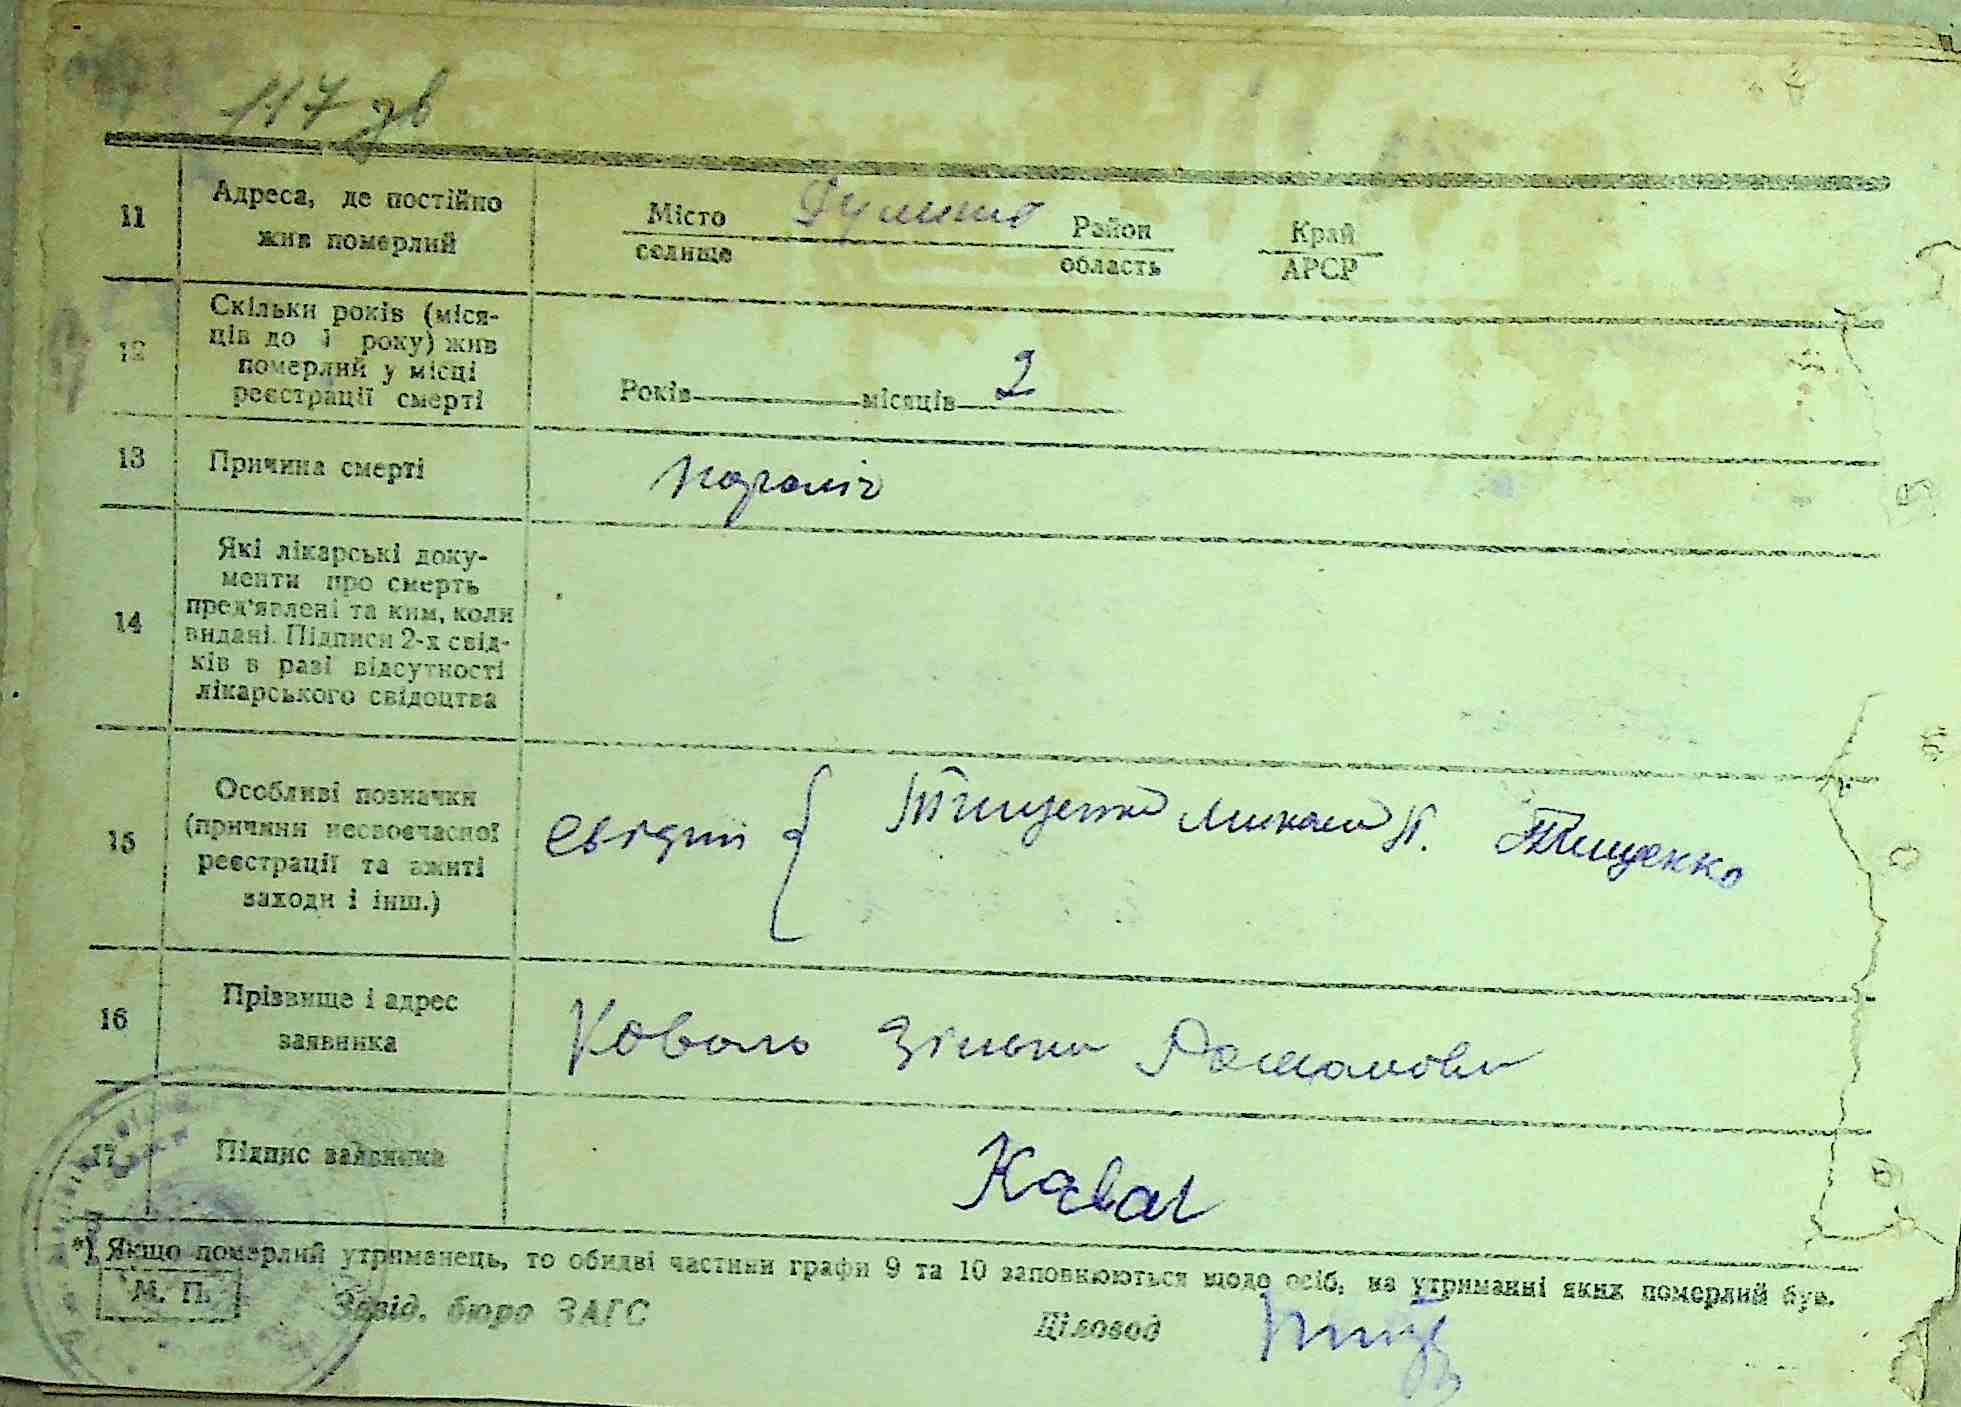 117 зв
11 Адреса, де постійно жив померлий Місто селище Район область Край АРСР
12 Скільки років (міся-
ців до 1 року) жив
померлий у місці
реєстрації смерті Років місяців 2
13 Причина смерті
14 Які лікарські доку-
менти про смерть
пред'явлені та ким, коли
видані. Підписи 2-х свід-
ків в разі відсутності
лікарського свідоцтва
15 Особливі позначки
(причини несвоєчасної
реєстрації та вжиті
заходи і інш.) Свідки { Тищенко Микола П. Тищенко
16 Прізвище і адрес
заявника Коваль Зінька Романовн
17 Підпис заявника Каваль
*) Якщо померлий утриманець, то обидві частини графи 9 та 10 заповнюються щодо осіб, на утриманні яких померлий був.
М. П. Завід. бюро ЗАГС Діловод